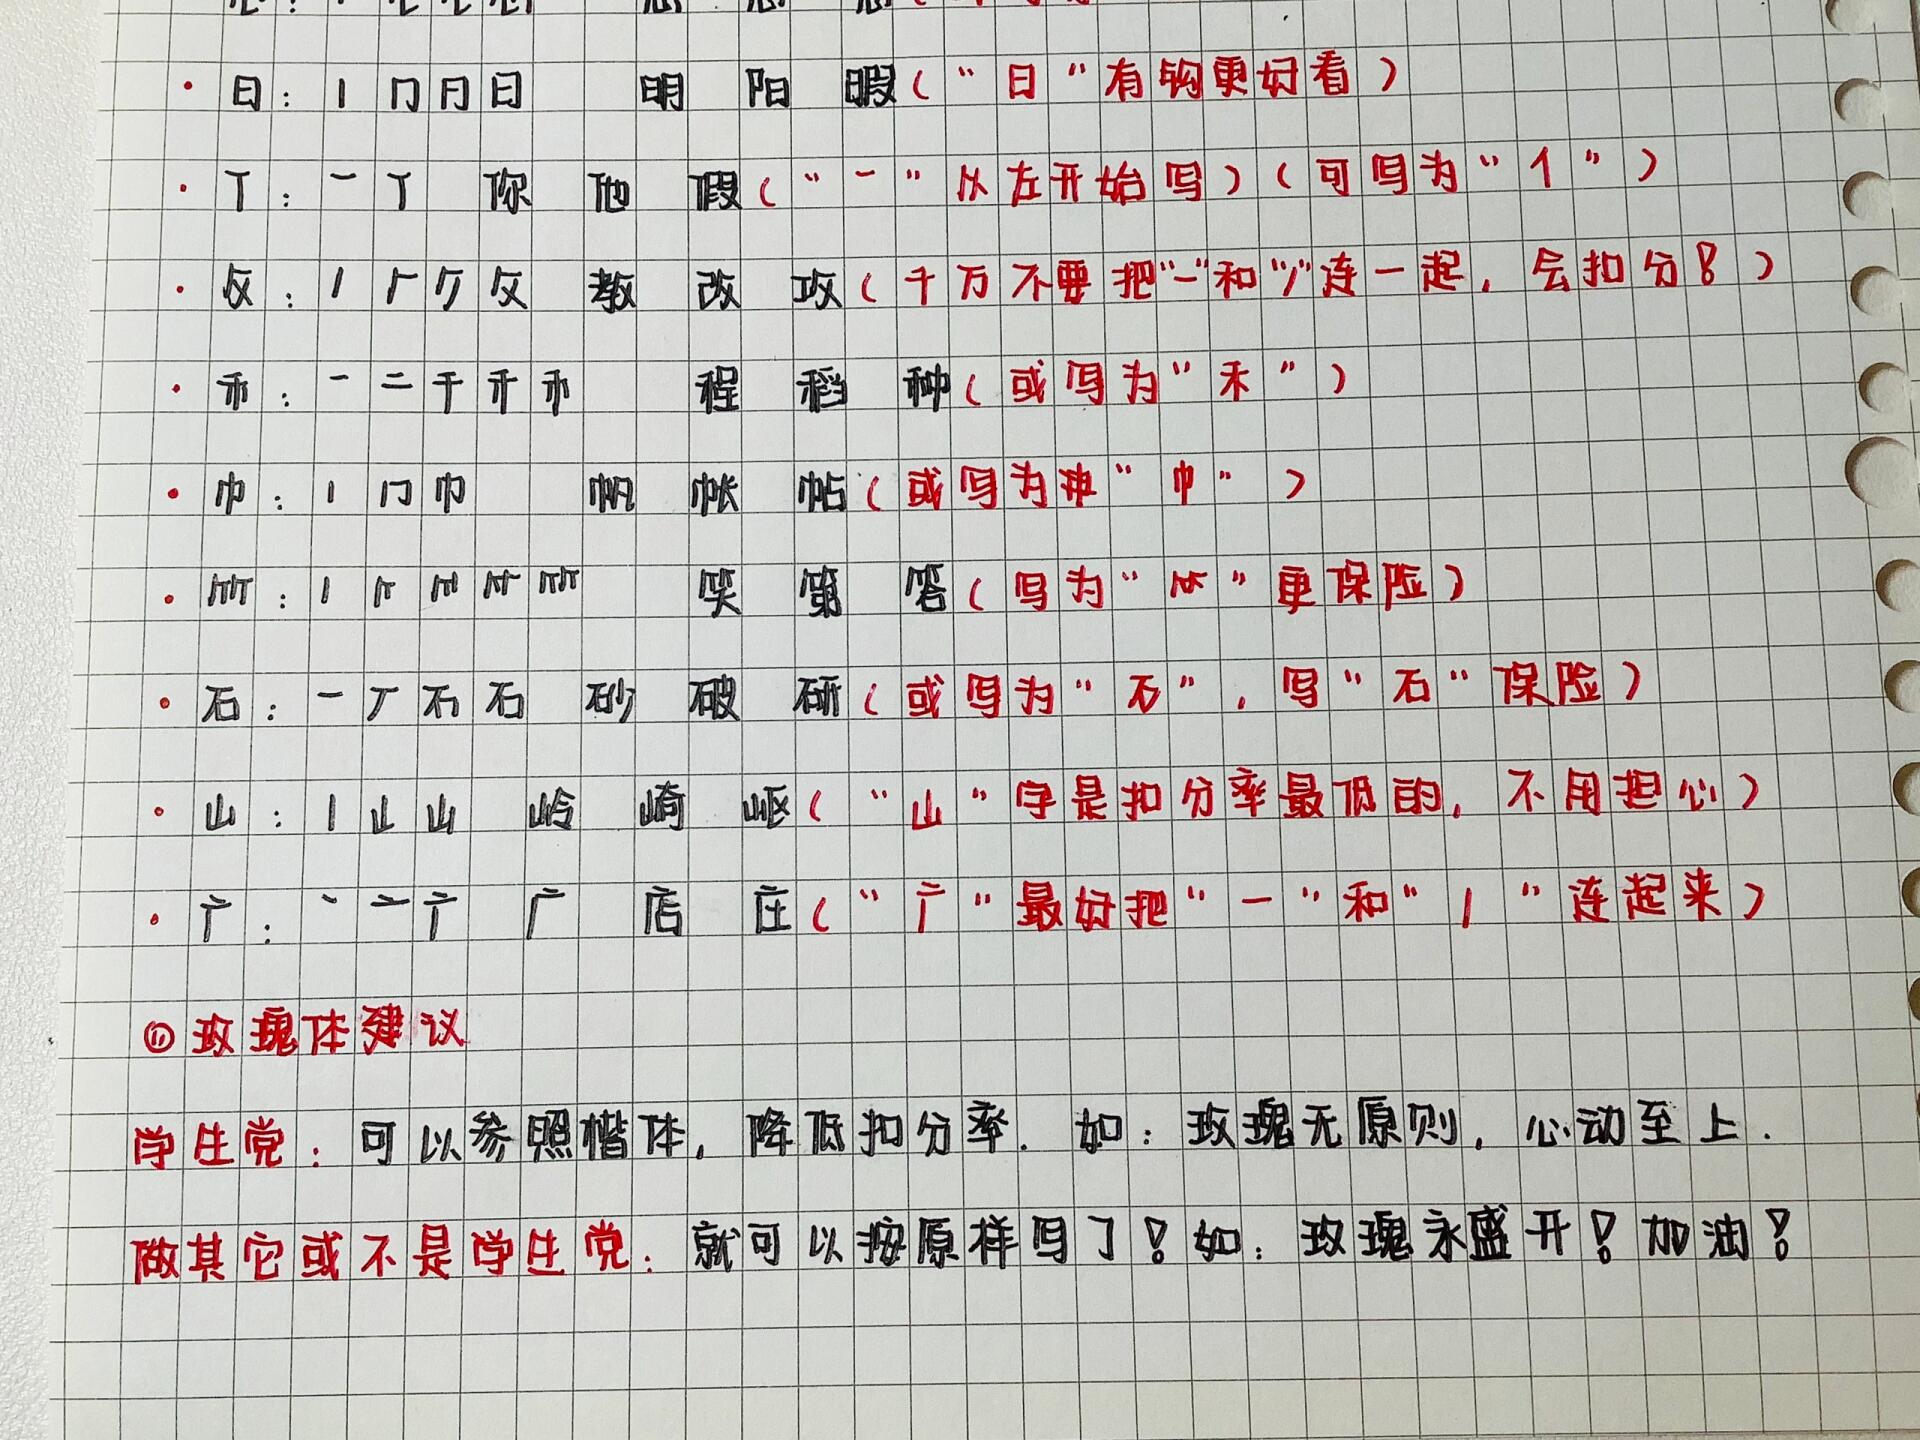 ·日：丨 冂 月 日 明 阳 暇（“日”有钩更好看）
·丅：一 丅 你 他 假（“一”从左开始写）（可写为“亻”）
·攵：丿 攵 教 改 攻（千万不要把“一”和“丿”连一起，会扣分！）
·禾：一 二 千 禾 程 稻 种（或写为“禾”）
·巾：丨 冂 巾 帆 帐 帖（或写为“巾”）
·竹：笑 第 答（写为“⺮”更保险）
·石：一 丆 石 石 砂 破 研（或写为“石”，写“石”保险）
·山：丨 山 山 岭 崎 岖（“山”字是扣分率最低的，不用担心）
·广：丶 亠 广 广 店 庄（“广”最好把“一”和“丨”连起来）
⑪玫瑰体建议
学生党：可以参照楷体，降低扣分率．如：玫瑰无原则，心动至上．
做其它或不是学生党：就可以按原样写了！如：玫瑰永盛开！加油！